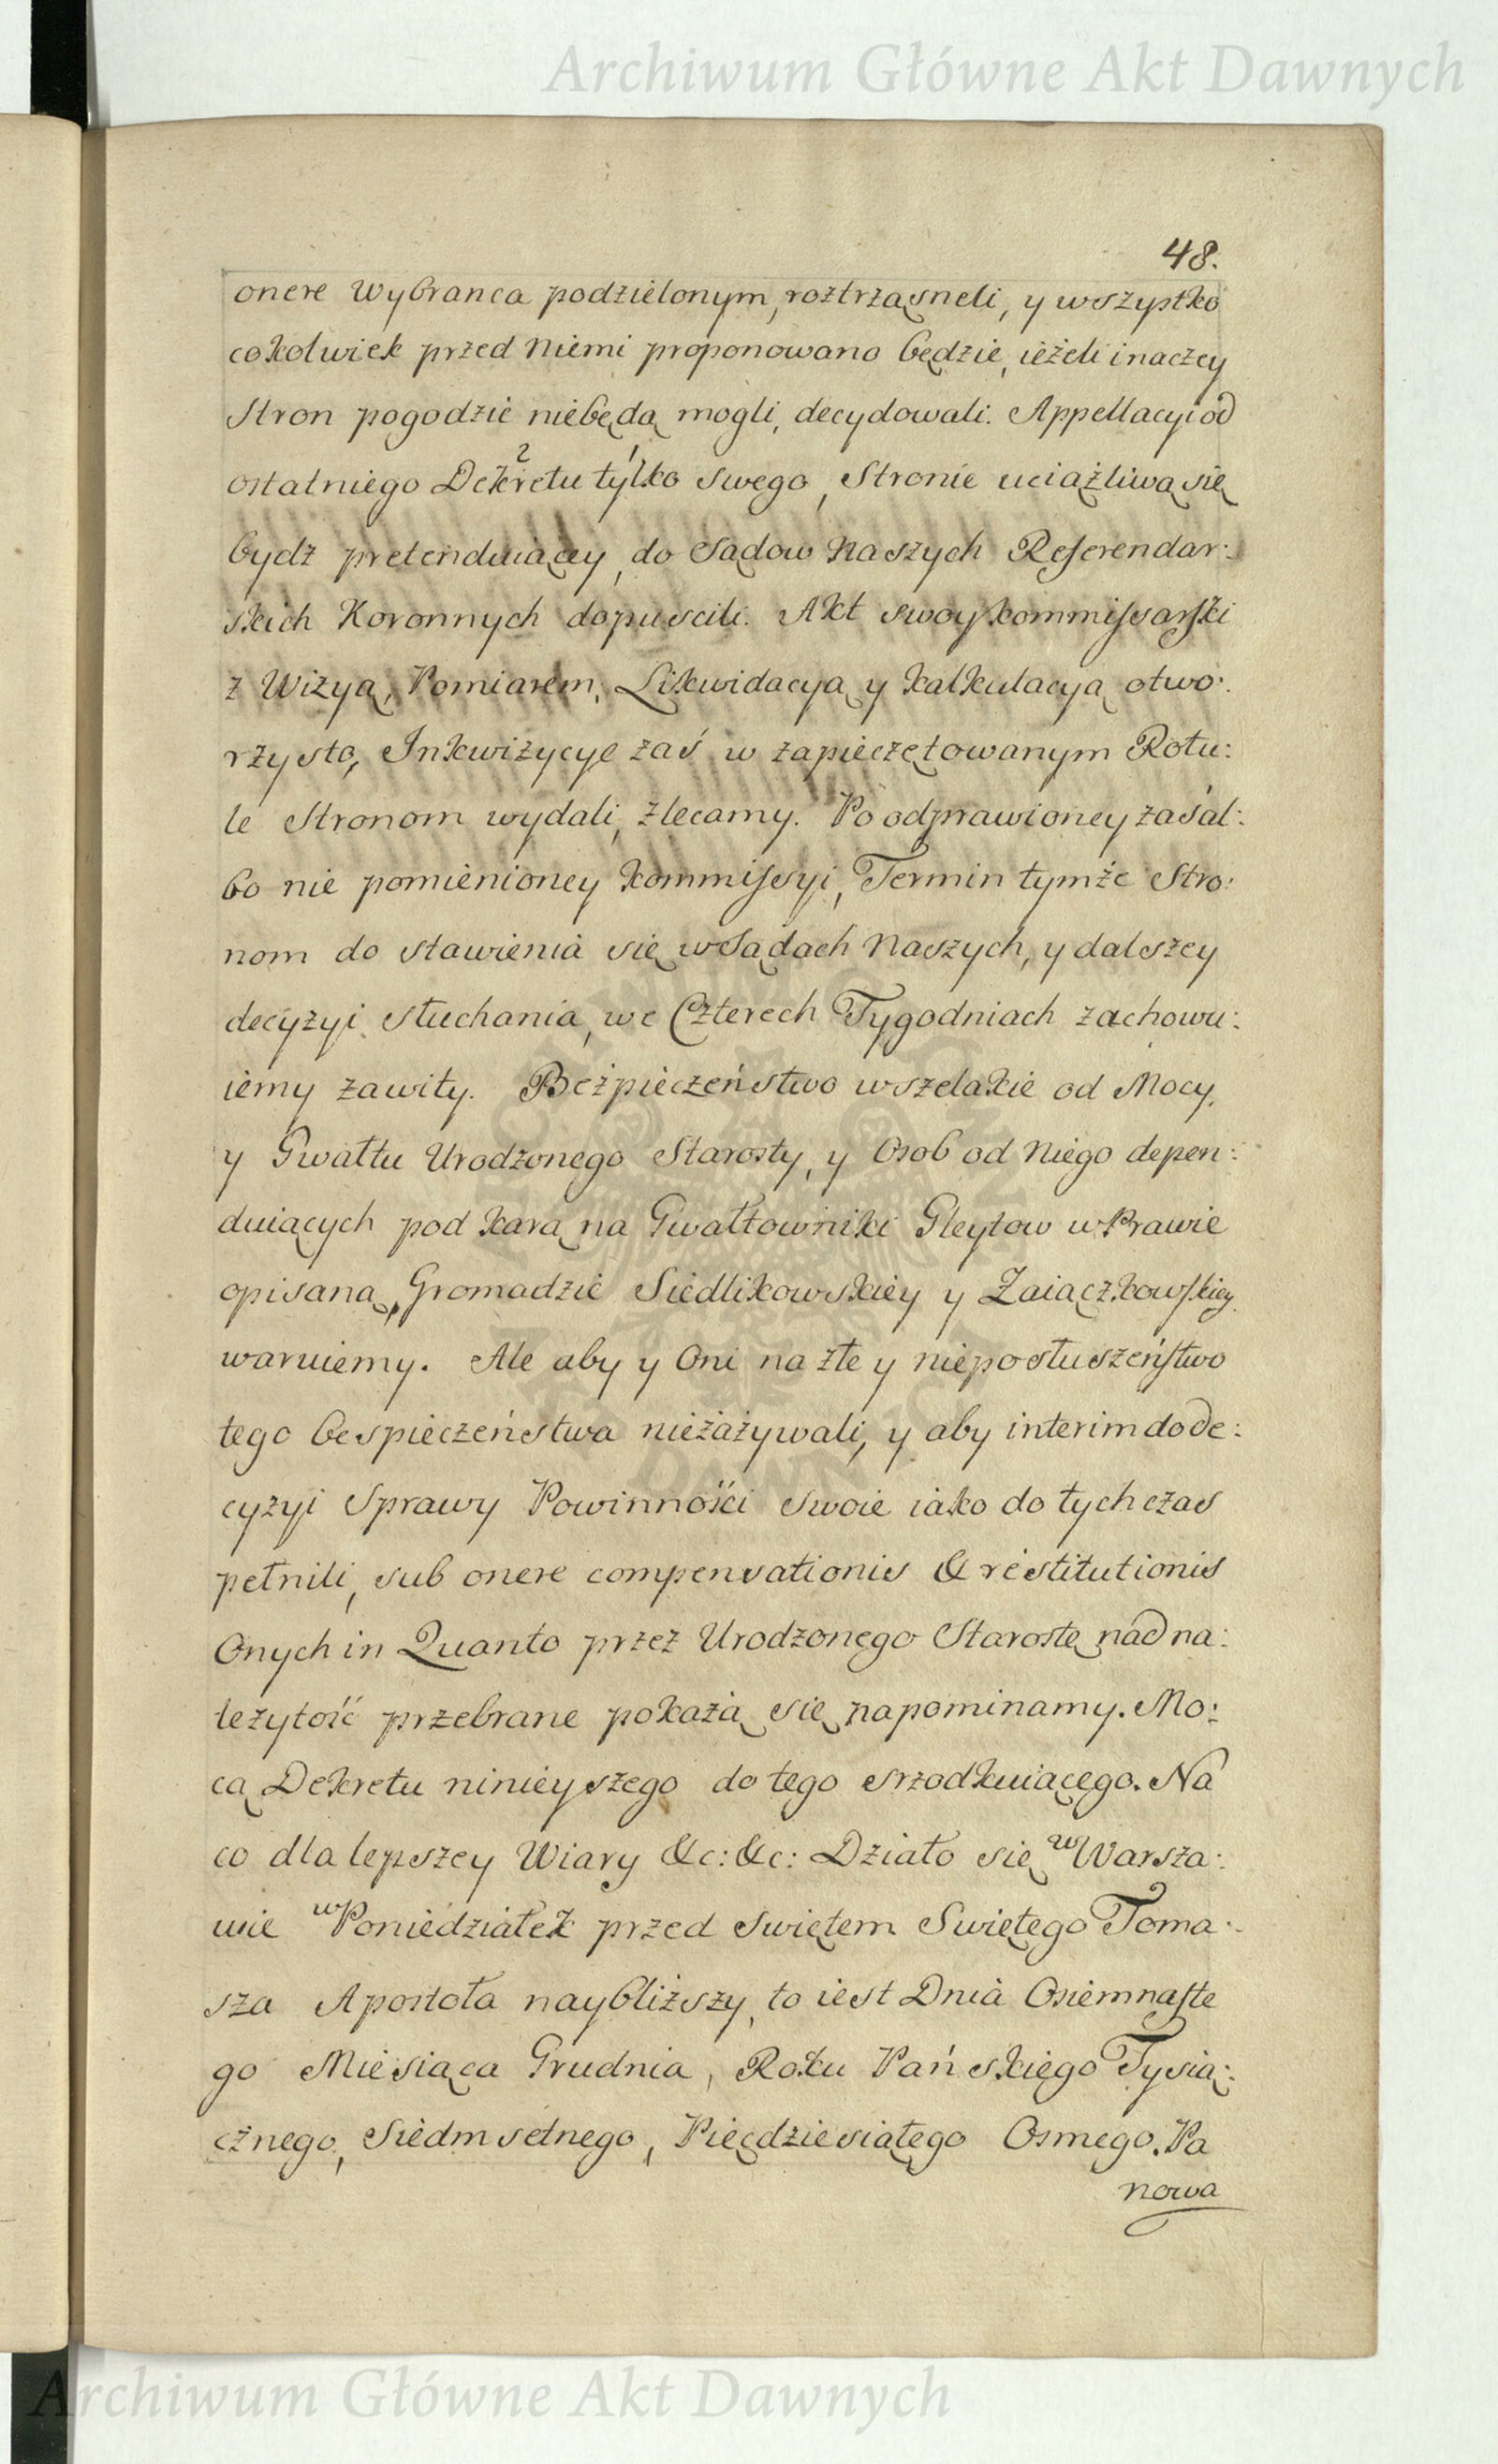 Archiwum Główne Akt Dawnych
48.
onere Wybranca podzielonym, roztrząsneli, y wszystko
cokolwiek przed Niemi proponowano będzie, ieżeli inaczey
Stron pogodzić niebędą mogli, decydowali. Appellacyi od
ostatniego Dekretu² tylko¹ swego, Stronie uciążliwą się
bydź pretenduiącey, do Sądow Naszych Referendar:
skich Koronnych dopuscili. Akt swoy Kommissarski
z Wizyą, Pomiarem, Likwidacyą y Kalkulacyą otwo:
rzysto, Inkwizycye zaś w zapieczętowanym Rotu:
le Stronom wydali, zlecamy. Po odprawioney zaś al:
bo nie pomienioney Kommissyi, Termin tymże Stro:
nom do stawienia się w Sądach Naszych, y dalszey
decyzyi słuchania, we Czterech Tygodniach zachowu:
iemy zawity. Bezpieczeństwo wszelakie od Mocy,
y Gwałtu Urodzonego Starosty, y Osob od Niego depen:
duiących pod karą na Gwałtowniki Gleytow w Prawie
opisaną, Gromadzie Siedlikowskiey y Zaiączkowskiey
waruiemy. Ale aby y Oni na złe y nieposłuszeństwo
tego bespieczeństwa niezażywali, y aby interim do De:
cyzyi Sprawy Powinności swoie iako do tych czas
pełnili, sub onere compensationis & restitutionis
Onych in Quanto przez Urodzonego Starostę nad na:
leżytość przebrane pokażą się napominamy. Mo:
cą Dekretu ninieyszego do tego srzodkuiącego. Na
co dla lepszey Wiary &c: &c: Działo się w Warsza:
wie w Poniedziałek przed Swiętem Swiętego Toma:
sza Apostoła naybliższy, to iest Dnia Osiemnaste
go Miesiąca Grudnia, Roku Pańskiego Tysią:
cznego, Siedmsetnego, Pięcdziesiątego Osmego. Pa
nowa
Archiwum Główne Akt Dawnych